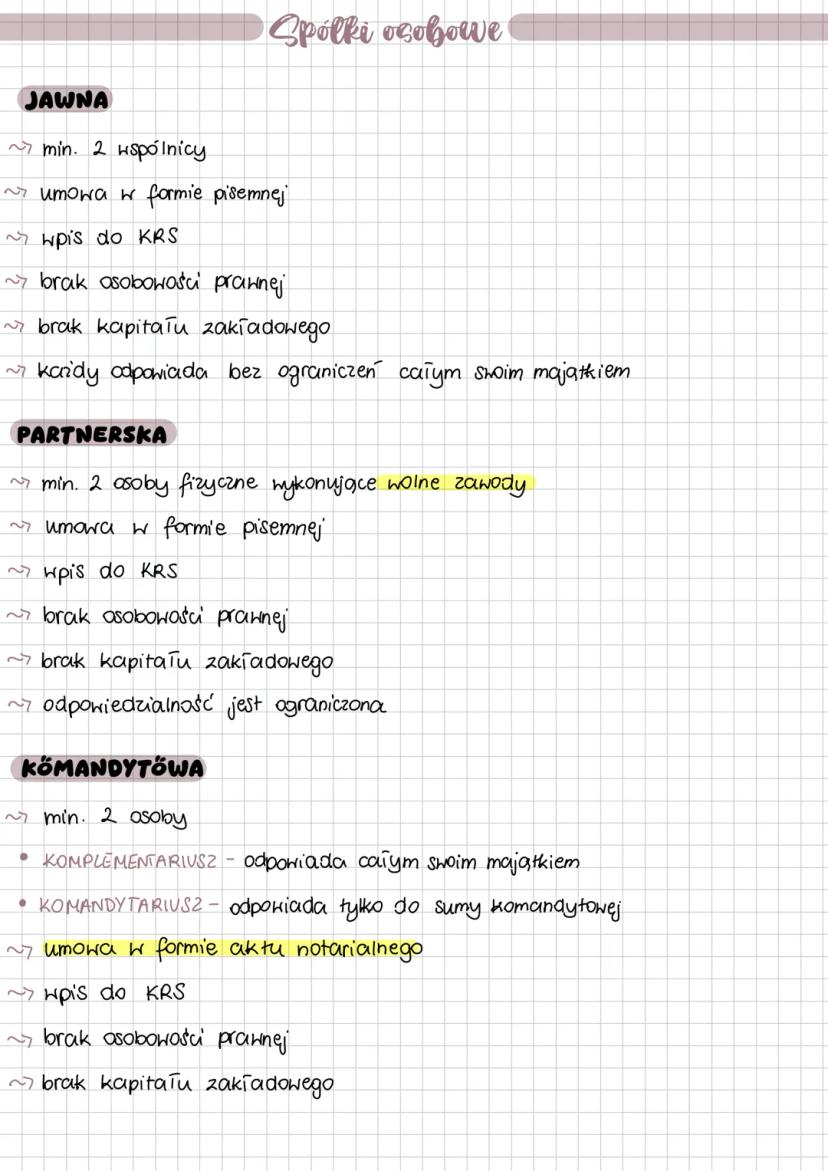 Spółki osobowe
JAWNA
~> min. 2 wspólnicy
~> umowa w formie pisemnej
~> wpis do KRS
~> brak osobowości prawnej
~> brak kapitału zakładowego
~> każdy odpowiada bez ograniczeń całym swoim majątkiem
PARTNERSKA
~> min. 2 osoby fizyczne wykonujące wolne zawody
~> umowa w formie pisemnej
~> wpis do KRS
~> brak osobowości prawnej
~> brak kapitału zakładowego
~> odpowiedzialność jest ograniczona
KOMANDYTOWA
~> min. 2 osoby
• KOMPLEMENTARIUSZ - odpowiada całym swoim majątkiem
• KOMANDYTARIUSZ - odpowiada tylko do sumy komandytowej
~> umowa w formie aktu notarialnego
~> wpis do KRS
~> brak osobowości prawnej
~> brak kapitału zakładowego